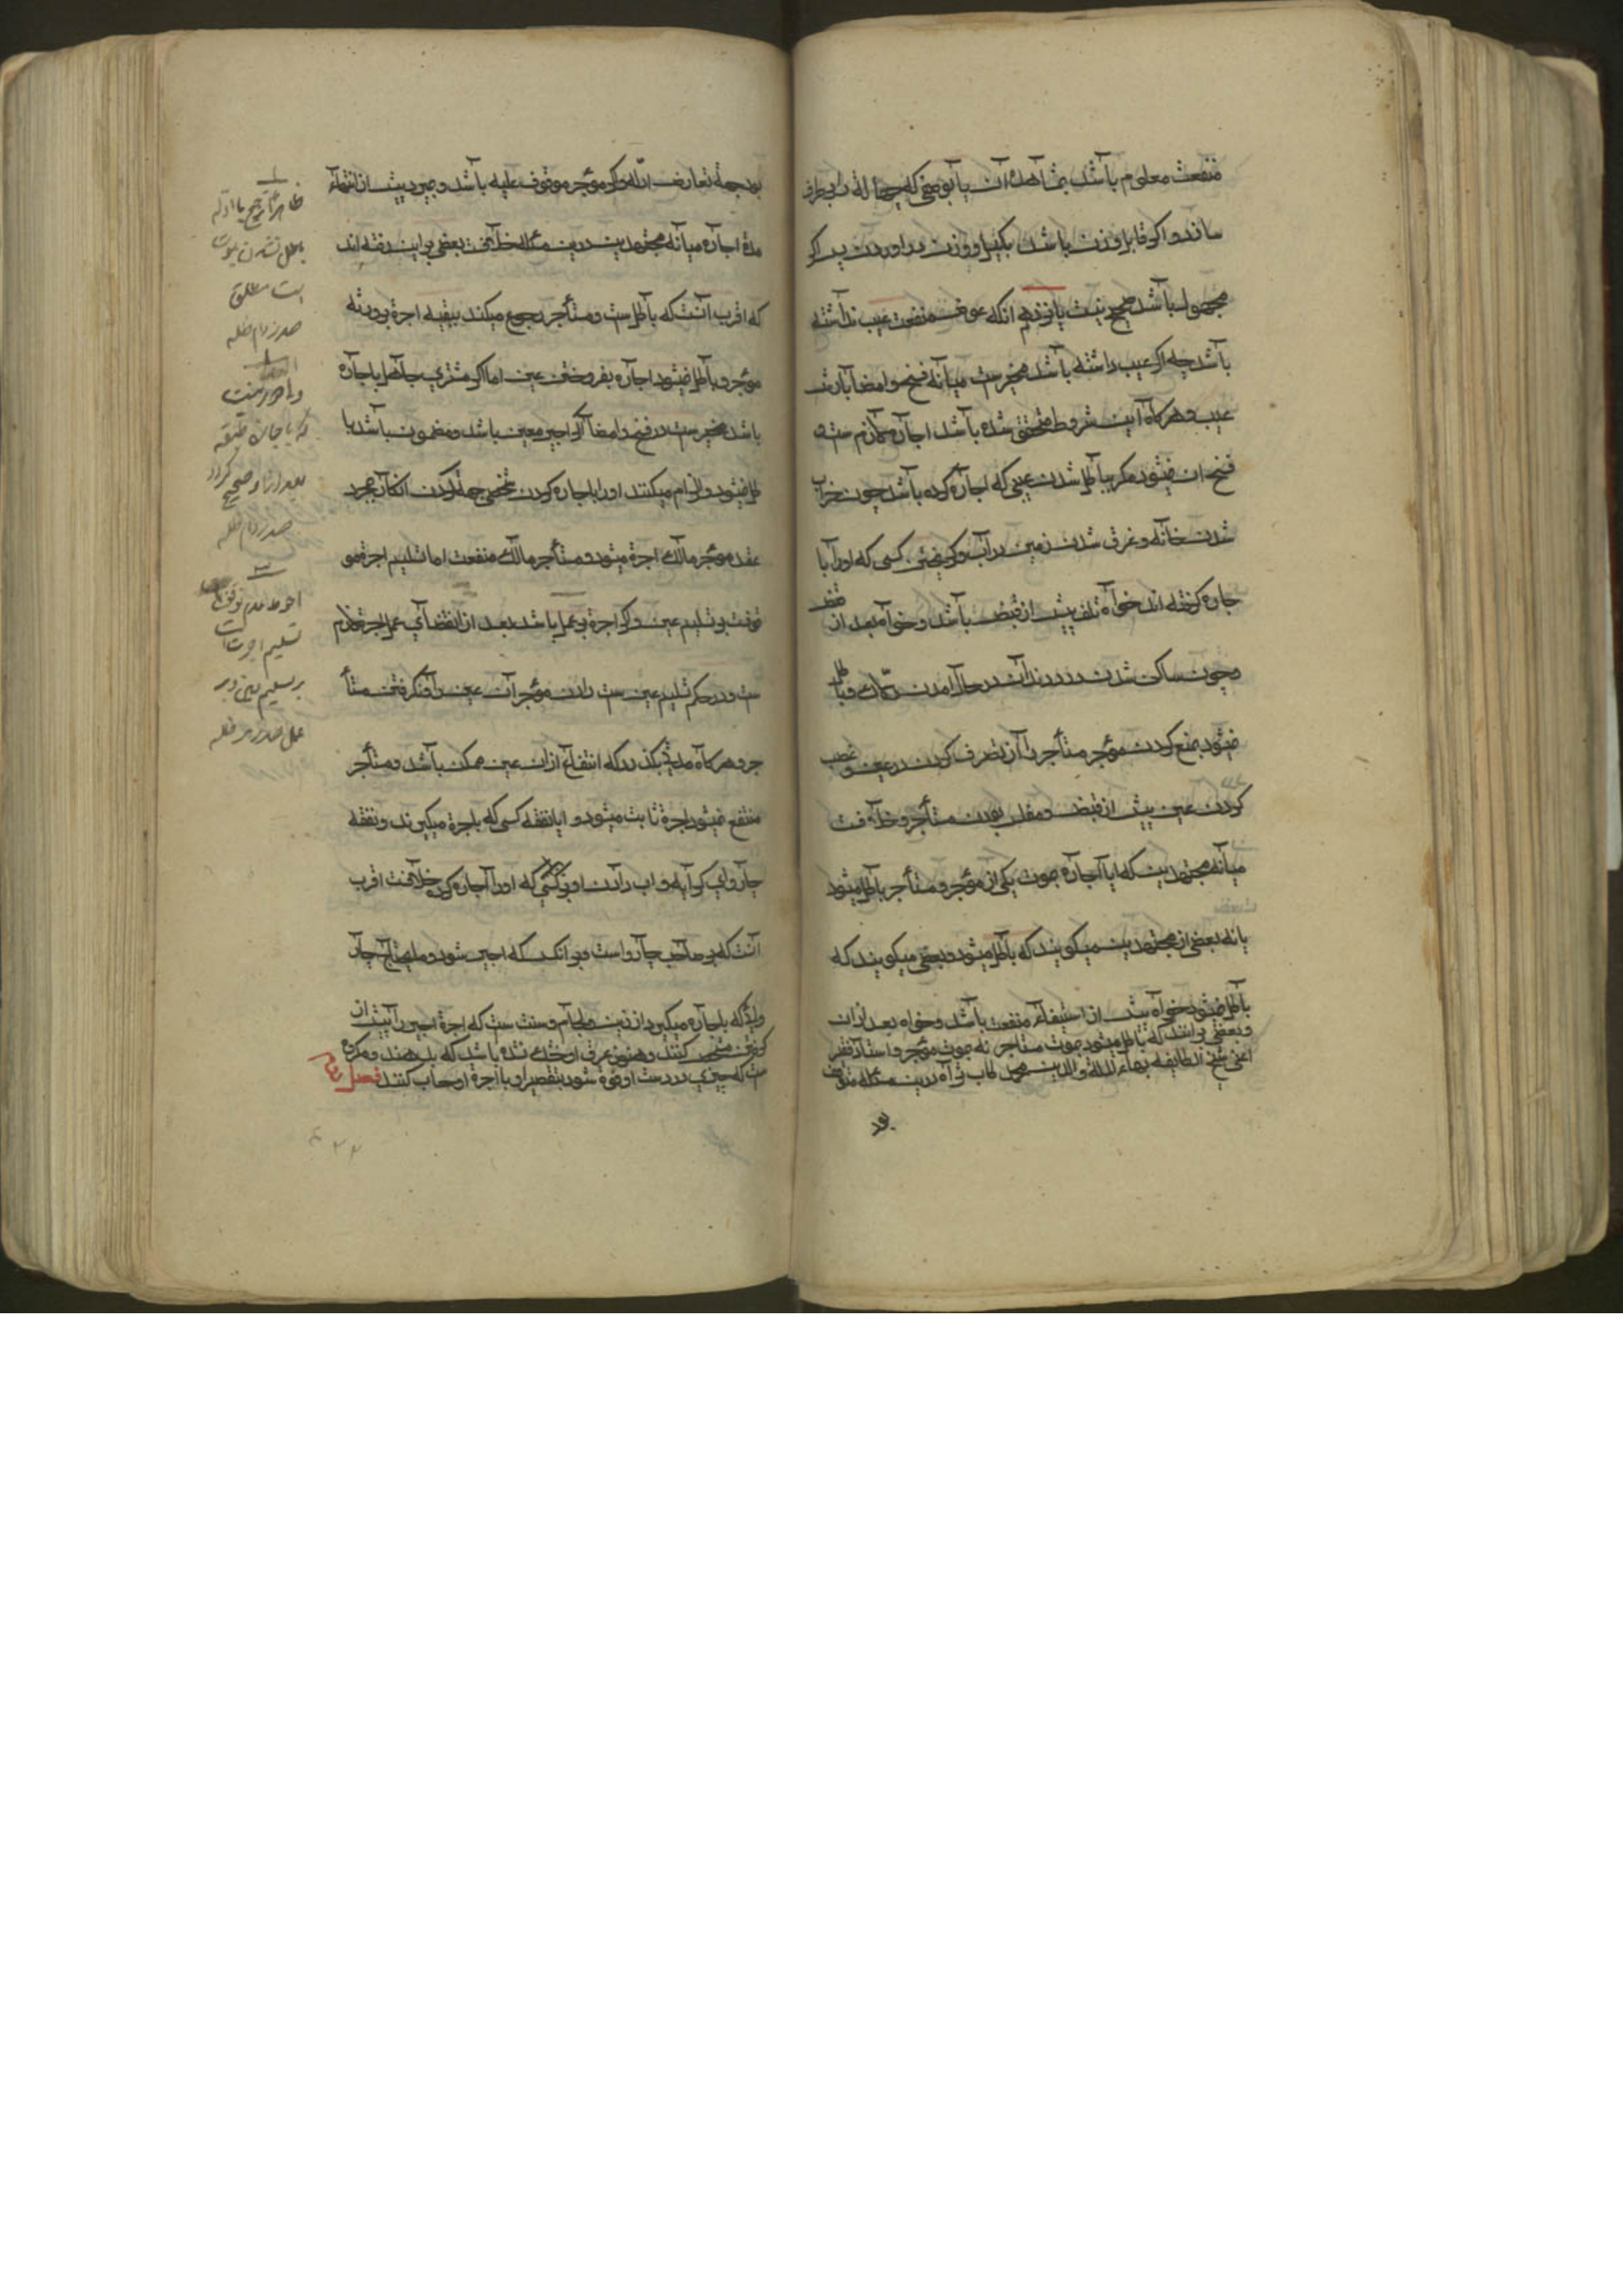 منفعت معلوم باشد بمشاهدهٔ آن یا بوصفی که جهالة را برطرف
ساند و اکر قابل وزن باشد بکیل و وزن در اوردن پس اکر
مجهول باشد صحیح نیست پانزدهم انکه عوض منفعت عیب نداشته
باشد چه اکر عیب داشته باشد مخیرست میانه فسخ و امضا با ارش
عیب و هرکاه این شروط متحقق شده باشد اجاره لازم ست و
فسخ ان نمیشود مکر بباطل شدن عینی که اجاره کرده باشد چون خراب
شدن خانه و غرق شدن زمین در آب و کریختن کسی که اورا با
جاره کرفته اند خواه تلف پیش از قبض باشد و خواه بعد از قبض
و چون ساکن شدن درد دندان در حال امدن و باطل
نمیشود بمنع کردن موجر مستأجر را از تصرف کردن در عین و غصب
کردن عین پیش از قبض و مفلس بودن مستأجر و خلافست
میانه مجتهدین که ایا اجاره بموت یکی از موجر و مستأجر باطل میشود
یا نه بعضی از مجتهدین میکویند که باطل میشود و بعضی میکویند که
باطل نمیشود خواه پیش از استیفاء منفعت باشد و خواه بعد از ان
و بعضی برانند که باطل میشود بموت مستاجر نه بموت موجر و استاد فقیر
اعنی شیخ الطایفه بهاء الملة والدین محمد طاب ثراه درین مسئله متوقف
بود
بود بجهة تعارض ادله و اکر موجر موقوف علیه باشد و بمیرد پیش از انتهاء
مدة اجاره میانه مجتهدین درین مسئله خلافست بعضی براین رفته اند
که اقرب آنست که باطل ست و مستأجر رجوع میکند ببقیه اجرة بورثه
موجر و باطل نمیشود اجاره بفروختن عین اما اکر مشتری جاهل باجاره
باشد مخیرست در فسخ و امضا و اکر اجیر معین باشد و مضمون باشد با
طل نمیشود و الزام میکنند اورا باجاره کردن شخصی جهة کردن ان کار بمجرد
عقد موجر مالک اجرة میشود و مستأجر مالک منفعت اما تسلیم اجرة مو
قوفست بر تسلیم عین و اکر اجرة بر عمل باشد بعد از انقضای عمل اجرة لازم
ست و در حکم تسلیم عین ست دادن موجر آن عین را و نکرفتن مستأ
جر و هرکاه مدتی بکذرد که انتفاع ازان عین ممکن باشد و مستأجر
منتفع نمیشود اجرة ثابت میشود و ایا نفقه کسی که باجرة میکیرند و نفقه
چاروای کرایه و اب دادن او بر کسی که اورا اجاره کرده خلافست اقرب
آنست که بر صاحب چارواست و بر انکس که اجیر شود و مایحتاج چار
وایی که باجاره میکیرد از زین و لجام و سنت ست که اجرة اجیر را پیش از
کردن مشخص کنند و هنوز عرق او خشک نشده باشد که بدهند و مکروه
ست که چیزی در دست او فوت شود بتقصیر او با اجرة او حساب کنند فصل
۱
ظاهرا ترجیح با ادله
باطل نشدن بموت
است مطلق
صدر دام ظله
۲
که باجاره
صدر دام ظله
۳
احوط عدم توقف
تسلیم اجرت است
بر تسلیم عین و بر
عمل صدر دام ظله